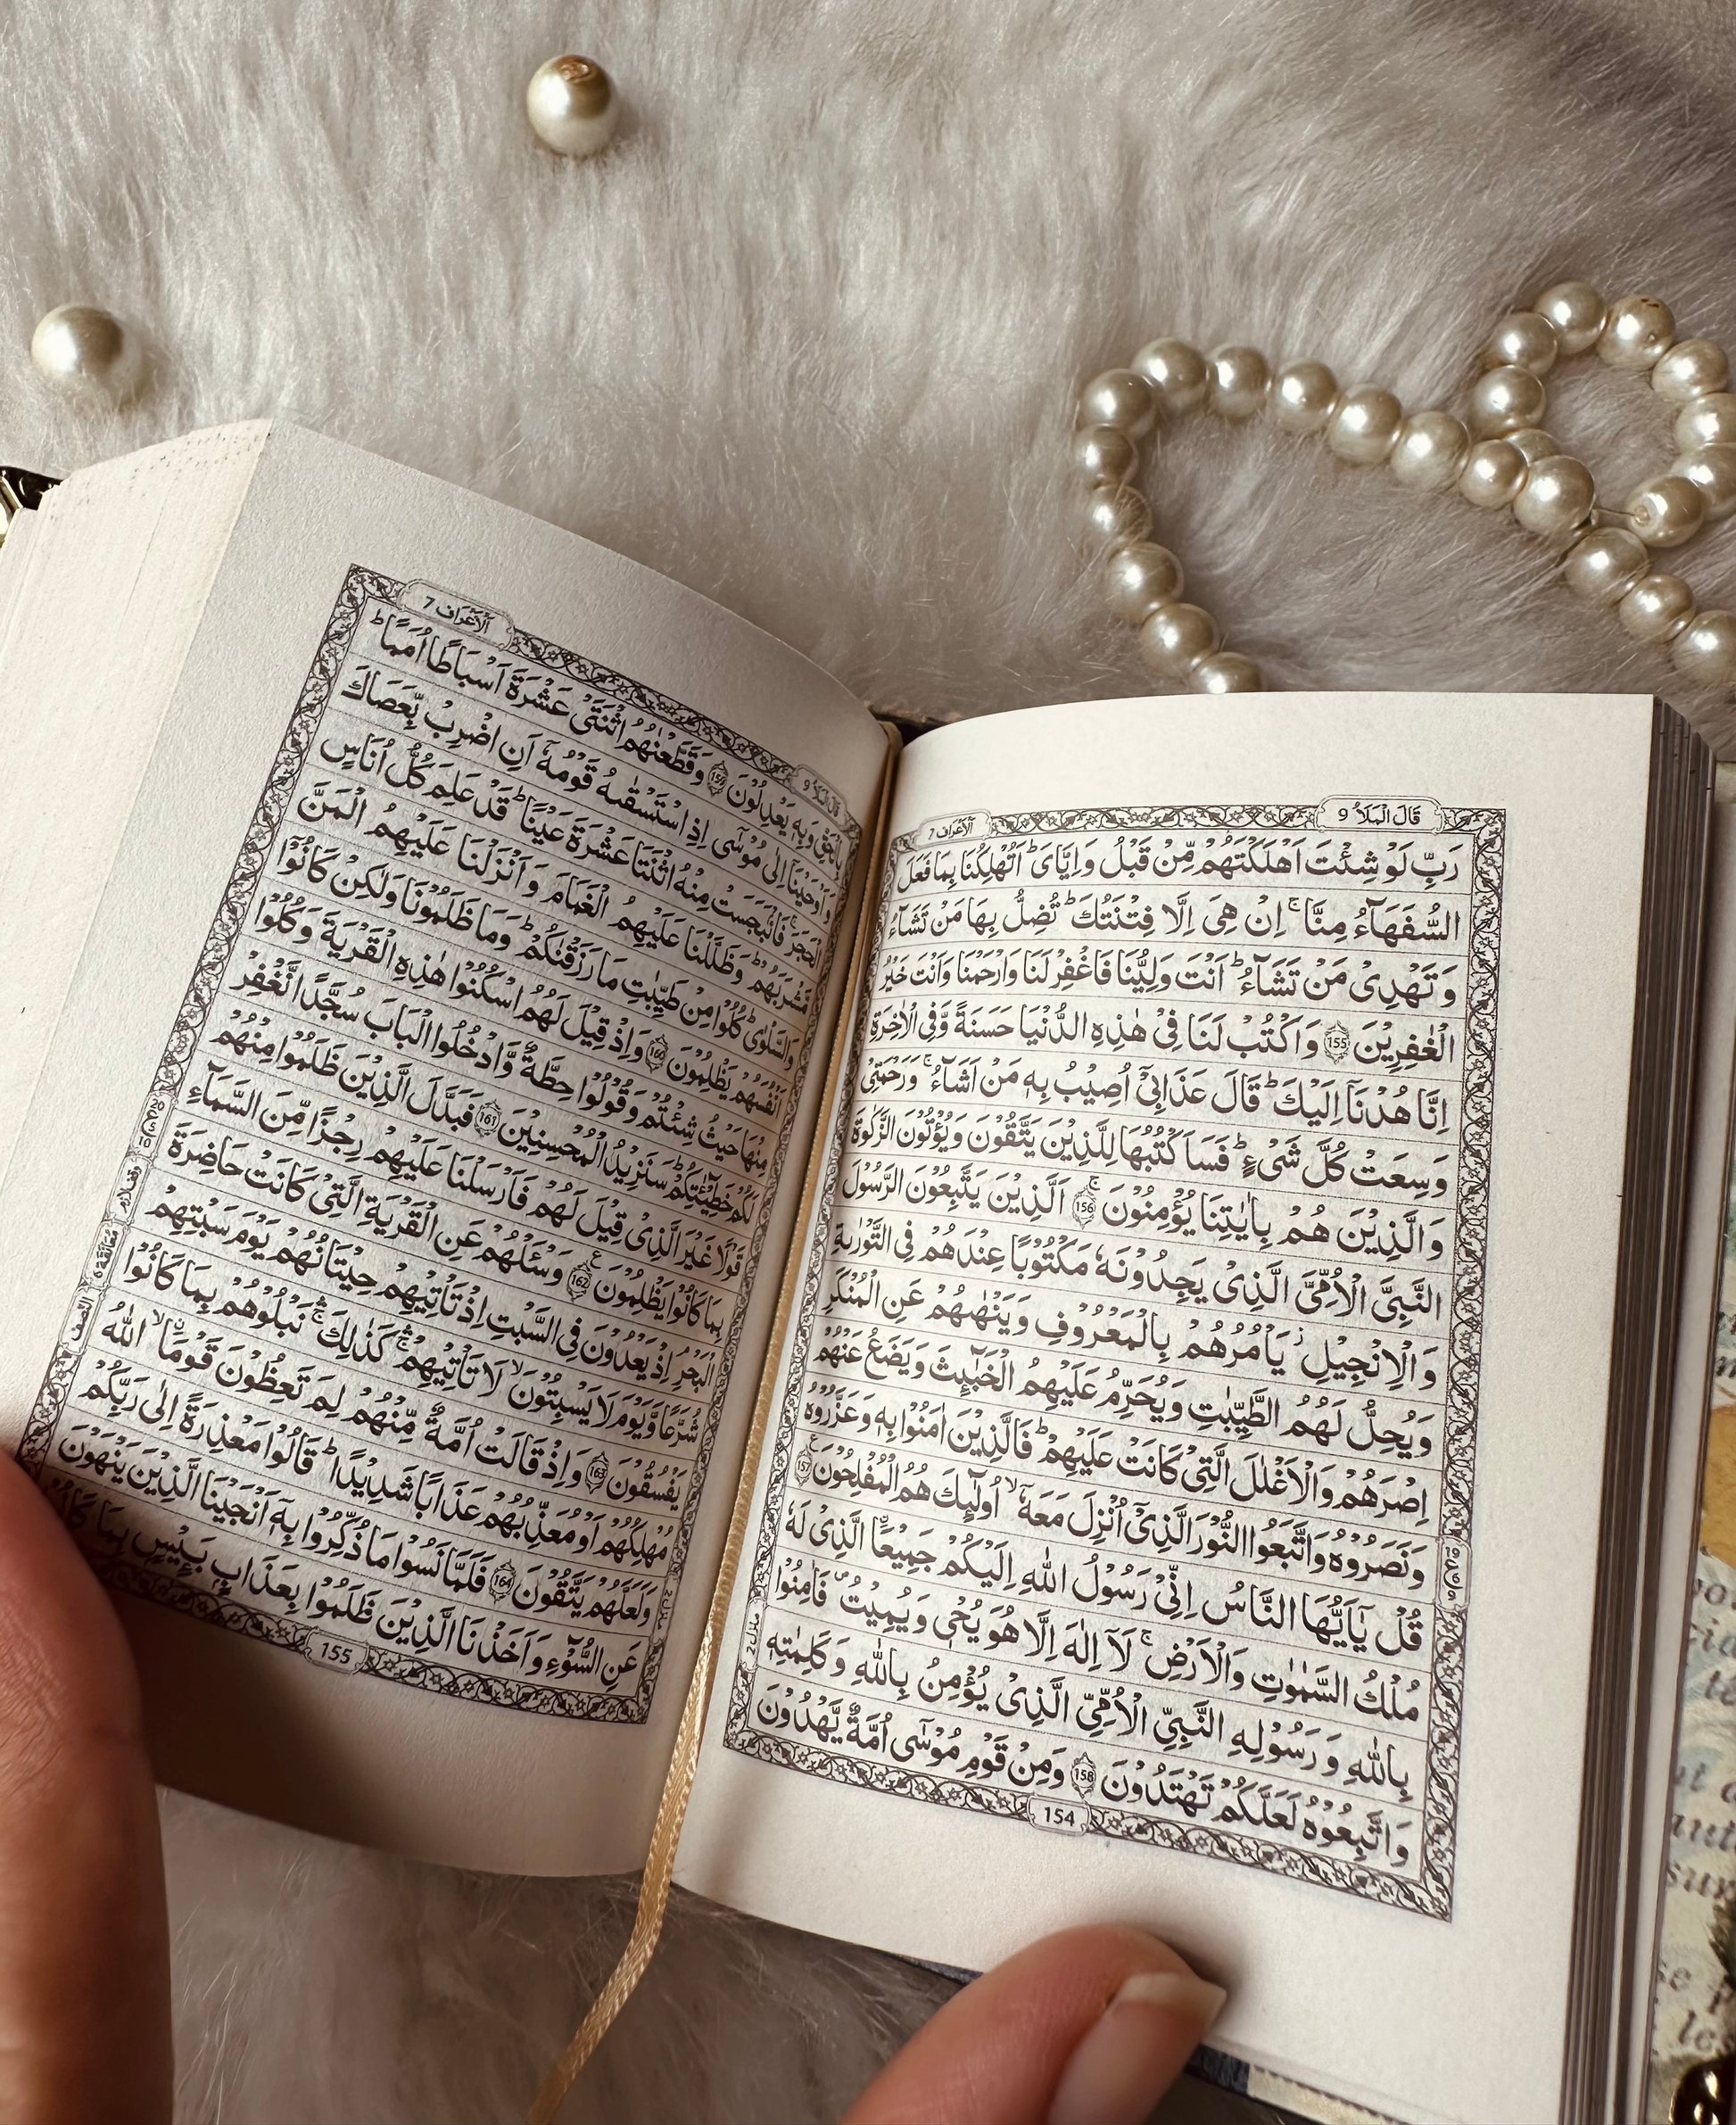 اَلْاَعْرَاف 7
قَالَ الْمَلَاُ 9
رَبِّ لَوْ شِئْتَ اَهْلَكْتَهُمْ مِّنْ قَبْلُ وَاِيَّايَ ؕ اَتُهْلِكُنَا بِمَا فَعَلَ
السُّفَهَآءُ مِنَّا ۚ اِنْ هِيَ اِلَّا فِتْنَتُكَ ؕ تُضِلُّ بِهَا مَنْ تَشَآءُ
وَتَهْدِيْ مَنْ تَشَآءُ ؕ اَنْتَ وَلِيُّنَا فَاغْفِرْ لَنَا وَارْحَمْنَا وَاَنْتَ خَيْرُ
الْغٰفِرِيْنَ 155 وَاكْتُبْ لَنَا فِيْ هٰذِهِ الدُّنْيَا حَسَنَةً وَّفِي الْاٰخِرَةِ
اِنَّا هُدْنَآ اِلَيْكَ ؕ قَالَ عَذَابِيْٓ اُصِيْبُ بِهٖ مَنْ اَشَآءُ ۚ وَرَحْمَتِيْ
وَسِعَتْ كُلَّ شَيْءٍ ؕ فَسَاَكْتُبُهَا لِلَّذِيْنَ يَتَّقُوْنَ وَيُؤْتُوْنَ الزَّكٰوةَ
وَالَّذِيْنَ هُمْ بِاٰيٰتِنَا يُؤْمِنُوْنَ 156 اَلَّذِيْنَ يَتَّبِعُوْنَ الرَّسُوْلَ
النَّبِيَّ الْاُمِّيَّ الَّذِيْ يَجِدُوْنَهٗ مَكْتُوْبًا عِنْدَهُمْ فِي التَّوْرٰىةِ
وَالْاِنْجِيْلِ ؗ يَاْمُرُهُمْ بِالْمَعْرُوْفِ وَيَنْهٰىهُمْ عَنِ الْمُنْكَرِ
وَيُحِلُّ لَهُمُ الطَّيِّبٰتِ وَيُحَرِّمُ عَلَيْهِمُ الْخَبٰٓئِثَ وَيَضَعُ عَنْهُمْ
اِصْرَهُمْ وَالْاَغْلٰلَ الَّتِيْ كَانَتْ عَلَيْهِمْ ؕ فَالَّذِيْنَ اٰمَنُوْا بِهٖ وَعَزَّرُوْهُ
وَنَصَرُوْهُ وَاتَّبَعُوا النُّوْرَ الَّذِيْٓ اُنْزِلَ مَعَهٗٓ ۙ اُولٰٓئِكَ هُمُ الْمُفْلِحُوْنَ 157
قُلْ يٰٓاَيُّهَا النَّاسُ اِنِّيْ رَسُوْلُ اللّٰهِ اِلَيْكُمْ جَمِيْعًا الَّذِيْ لَهٗ
مُلْكُ السَّمٰوٰتِ وَالْاَرْضِ ۚ لَآ اِلٰهَ اِلَّا هُوَ يُحْيٖ وَيُمِيْتُ ۪ فَاٰمِنُوْا
بِاللّٰهِ وَرَسُوْلِهِ النَّبِيِّ الْاُمِّيِّ الَّذِيْ يُؤْمِنُ بِاللّٰهِ وَكَلِمٰتِهٖ
وَاتَّبِعُوْهُ لَعَلَّكُمْ تَهْتَدُوْنَ 158 وَمِنْ قَوْمِ مُوْسٰٓى اُمَّةٌ يَّهْدُوْنَ
منزل 2
154
اَلْاَعْرَاف 7
قَالَ الْمَلَاُ 9
بِالْحَقِّ وَبِهٖ يَعْدِلُوْنَ 159 وَقَطَّعْنٰهُمُ اثْنَتَيْ عَشْرَةَ اَسْبَاطًا اُمَمًا ؕ
وَاَوْحَيْنَآ اِلٰى مُوْسٰٓى اِذِ اسْتَسْقٰىهُ قَوْمُهٗٓ اَنِ اضْرِبْ بِّعَصَاكَ
الْحَجَرَ ۚ فَانْۢبَجَسَتْ مِنْهُ اثْنَتَا عَشْرَةَ عَيْنًا ؕ قَدْ عَلِمَ كُلُّ اُنَاسٍ
مَّشْرَبَهُمْ ؕ وَظَلَّلْنَا عَلَيْهِمُ الْغَمَامَ وَاَنْزَلْنَا عَلَيْهِمُ الْمَنَّ
وَالسَّلْوٰى ؕ كُلُوْا مِنْ طَيِّبٰتِ مَا رَزَقْنٰكُمْ ؕ وَمَا ظَلَمُوْنَا وَلٰكِنْ كَانُوْٓا
اَنْفُسَهُمْ يَظْلِمُوْنَ 160 وَاِذْ قِيْلَ لَهُمُ اسْكُنُوْا هٰذِهِ الْقَرْيَةَ وَكُلُوْا
مِنْهَا حَيْثُ شِئْتُمْ وَقُوْلُوْا حِطَّةٌ وَّادْخُلُوا الْبَابَ سُجَّدًا نَّغْفِرْ
لَكُمْ خَطِيْٓئٰتِكُمْ ؕ سَنَزِيْدُ الْمُحْسِنِيْنَ 161 فَبَدَّلَ الَّذِيْنَ ظَلَمُوْا مِنْهُمْ
قَوْلًا غَيْرَ الَّذِيْ قِيْلَ لَهُمْ فَاَرْسَلْنَا عَلَيْهِمْ رِجْزًا مِّنَ السَّمَآءِ
بِمَا كَانُوْا يَظْلِمُوْنَ 162 وَسْـَٔلْهُمْ عَنِ الْقَرْيَةِ الَّتِيْ كَانَتْ حَاضِرَةَ
الْبَحْرِ اِذْ يَعْدُوْنَ فِي السَّبْتِ اِذْ تَاْتِيْهِمْ حِيْتَانُهُمْ يَوْمَ سَبْتِهِمْ
شُرَّعًا وَّيَوْمَ لَا يَسْبِتُوْنَ ۙ لَا تَاْتِيْهِمْ ۛۚ كَذٰلِكَ ۛۚ نَبْلُوْهُمْ بِمَا كَانُوْا
يَفْسُقُوْنَ 163 وَاِذْ قَالَتْ اُمَّةٌ مِّنْهُمْ لِمَ تَعِظُوْنَ قَوْمًا ۙ اللّٰهُ
مُهْلِكُهُمْ اَوْ مُعَذِّبُهُمْ عَذَابًا شَدِيْدًا ؕ قَالُوْا مَعْذِرَةً اِلٰى رَبِّكُمْ
وَلَعَلَّهُمْ يَتَّقُوْنَ 164 فَلَمَّا نَسُوْا مَا ذُكِّرُوْا بِهٖٓ اَنْجَيْنَا الَّذِيْنَ يَنْهَوْنَ
عَنِ السُّوْٓءِ وَاَخَذْنَا الَّذِيْنَ ظَلَمُوْا بِعَذَابٍۭ بَـِٔيْسٍۭ بِمَا
النصف
155